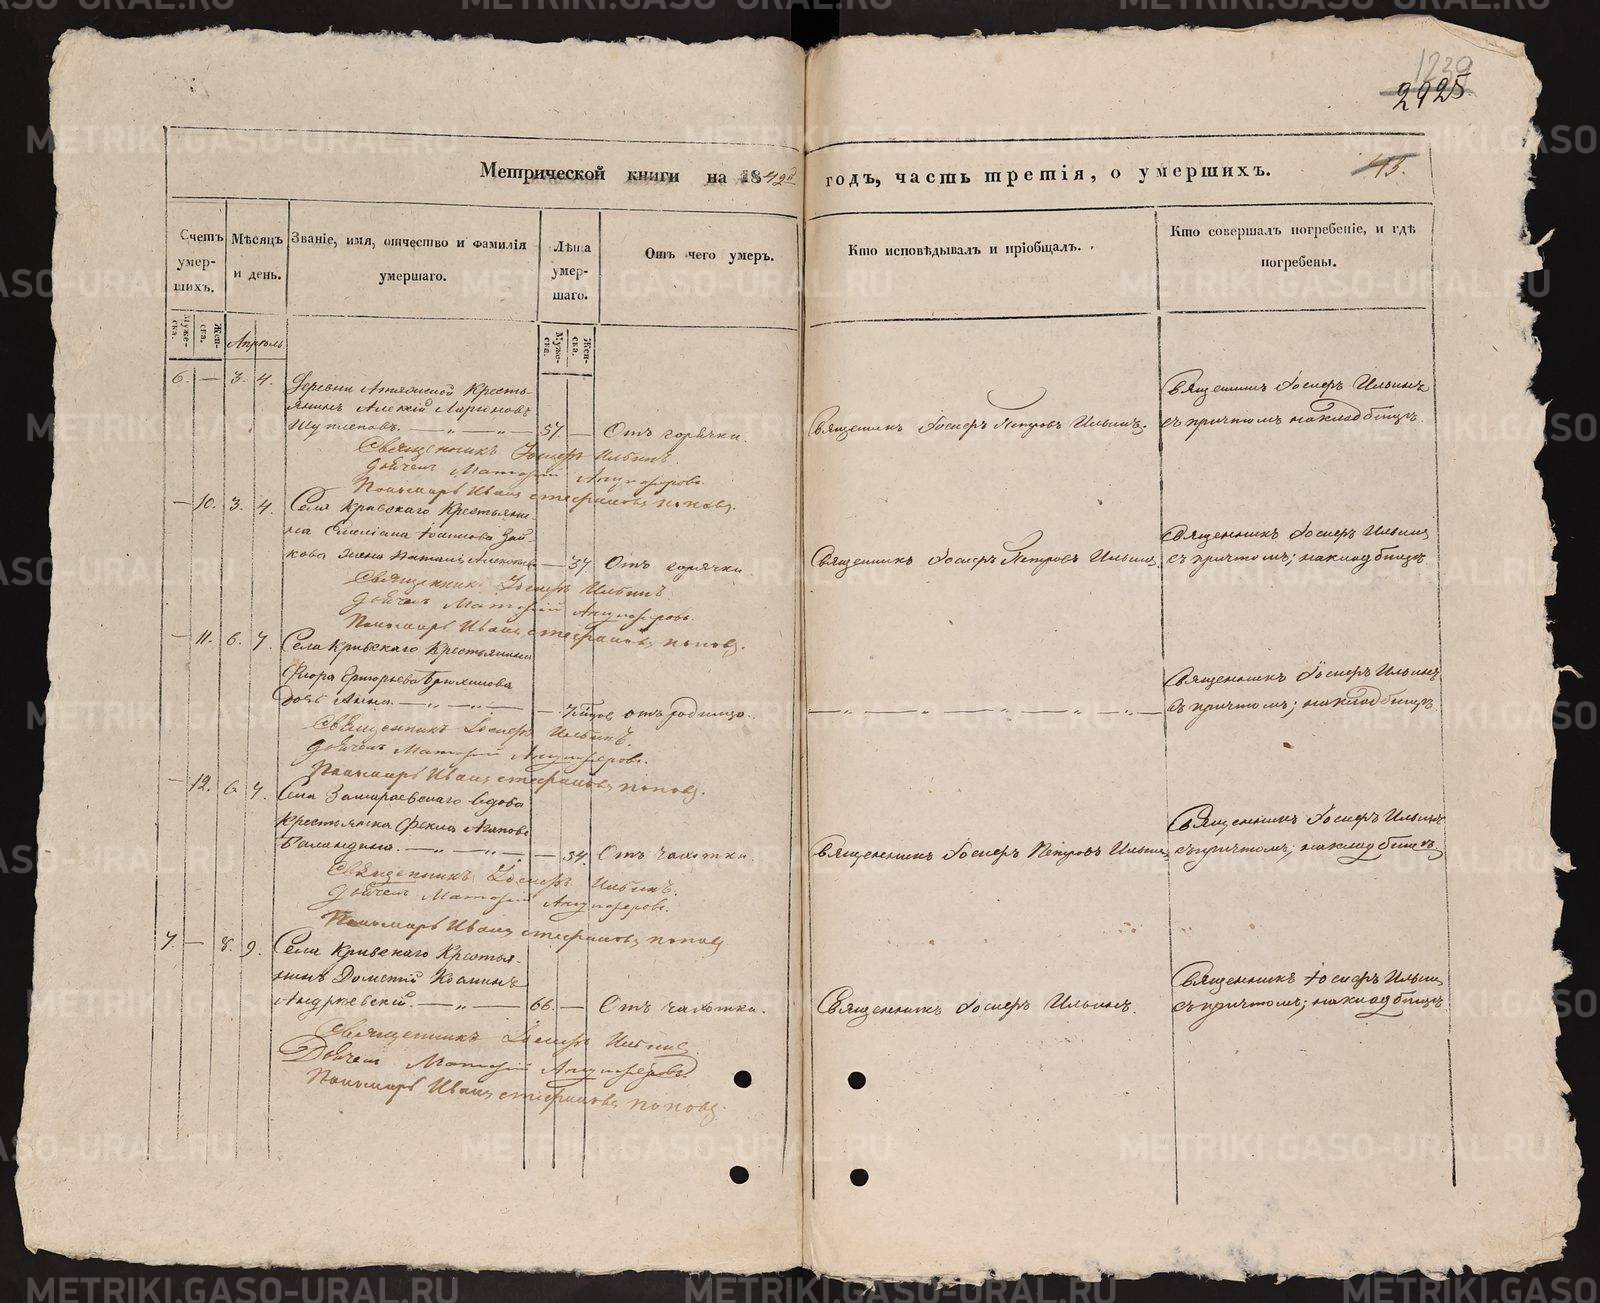 2925
1239
45.
Метрической книги на 1842й годъ, часть третія, о умершихъ.
Счетъ умер- шихъ.
Мѣсяцъ и день.
Званіе, имя, отчество и фамилія умершаго.
Лѣта умер- шаго.
Отъ чего умеръ.
Кто исповѣдывалъ и пріобщалъ.
Кто совершалъ погребеніе, и гдѣ погребены.
Муже- ска.
Жен- ска.
Муже- ска.
Жен- ска.
Апрѣль
6. — 3. 4. Деревни Кресть-
янинъ Алексій Ларіоновъ
57. — Отъ горячки. Священникъ Іосифъ Петровъ Ильинъ.
Священникъ Іосифъ Ильинъ
съ причтомъ на кладбищѣ.
Священникъ Іосифъ Ильинъ.
Дьячекъ Анцыферовъ.
Пономарь Иванъ Стефановъ Поповъ.
— 10. 3. 4. Села Кривскаго Крестьяни-
на
кова жена Наталія — 37. Отъ горячки Священникъ Іосифъ Петровъ Ильинъ
Священникъ Іосифъ Ильинъ
съ причтомъ; на кладбищѣ.
Священникъ Іосифъ Ильинъ.
Дьячекъ Анцыферовъ.
Пономарь Иванъ Стефановъ Поповъ.
— 11. 6. 7. Села Кривскаго Крестьянина
Григорьева
дочь Анна. отъ родимца.
Священникъ Іосифъ Ильинъ
съ причтомъ; на кладбищѣ.
Священникъ Іосифъ Ильинъ.
Дьячекъ Анцыферовъ.
Пономарь Иванъ Стефановъ Поповъ.
— 12. 6. 7. Села Замараевскаго вдова
крестьянка Фекла Агапова
Баландина. — 54. Отъ чахотки. Священникъ Іосифъ Петровъ Ильинъ
Священникъ Іосифъ Ильинъ
съ причтомъ; на кладбищѣ
Священникъ Іосифъ Ильинъ.
Дьячекъ Анцыферовъ.
Пономарь Иванъ Стефановъ Поповъ
7. — 8. 9. Села Кривскаго Крестья-
нинъ Дометій
Андреевскій. 66. — Отъ чахотки. Священникъ Іосифъ Ильинъ.
Священникъ Іосифъ Ильинъ
съ причтомъ; на кладбищѣ.
Священникъ Іосифъ Ильинъ
Дьячекъ Анцыферовъ.
Пономарь Иванъ Стефановъ Поповъ.
METRIKI.GASO-URAL.RU